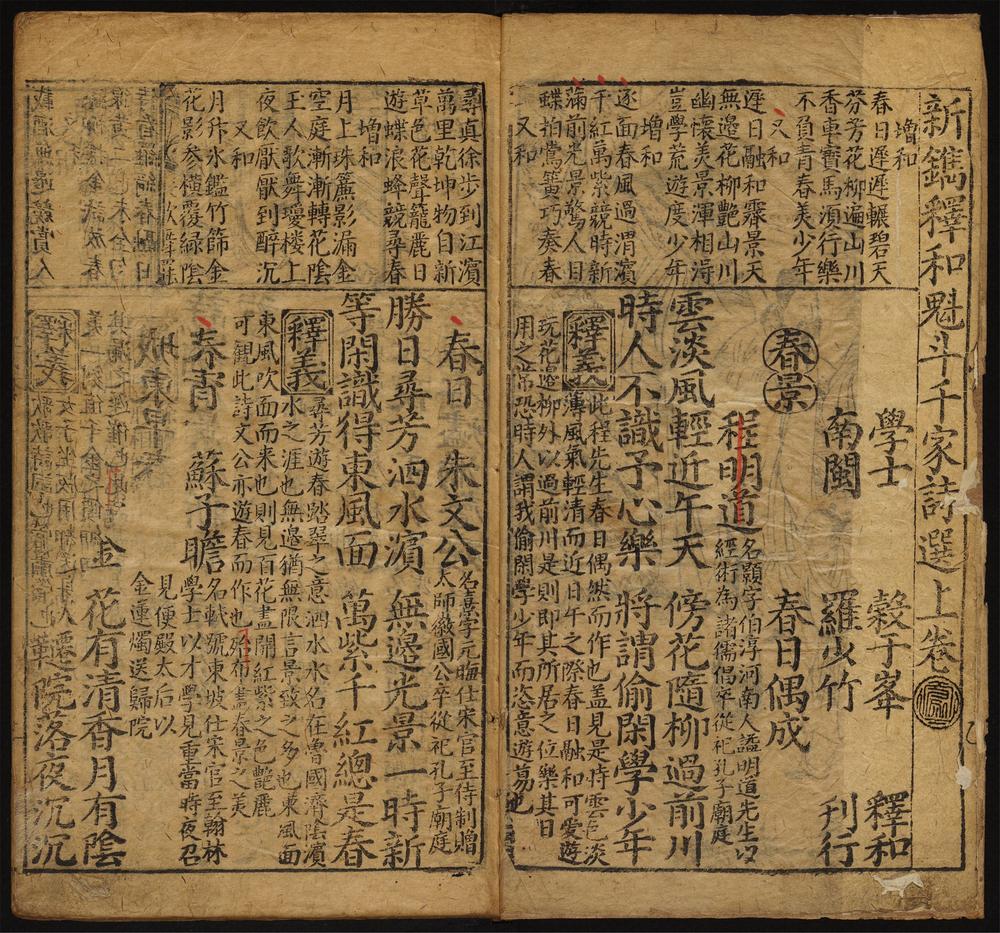 新鐫釋和魁斗千家詩選上卷
增和
春日遲遲輾碧天
芬芳花柳遍山川
香車寶馬須行樂
不負青春美少年
又和
遲日融和霽景天
無邊花柳艷山川
幽懷美景渾相得
豈學荒遊度少年
增和
逐面春風過渭濱
千紅萬紫競時新
滿前光景驚人日
蝶拍鶯簧巧奏春
又和
學士 穀于峯 釋和
南閩 羅少竹 刊行
春景 春日偶成
程明道
名顥字伯淳河南人謚明道先生以
經術為諸儒倡卒從祀孔子廟庭
雲淡風輕近午天 傍花隨柳過前川
時人不識予心樂 將謂偷閑學少年
釋義
此程先生春日偶然而作也蓋見是時雲色淡
薄風氣輕清而近日午之際春日融和可愛遊
玩花邊柳外以過前川是則即其所居之位樂其日
用之常恐時人謂我偷閑學少年而恣意遊蕩也
尋真徐步到江濱
萬里乾坤物自新
草色花聲籠麗日
遊蝶浪蜂競尋春
增和
月上珠簾影漏金
空庭漸漸轉花陰
王人歌舞瓊樓上
夜飲厭厭到醉沉
又和
月升水鑑竹篩金
花影參橫覆綠陰
春日 朱文公
名熹字元晦仕宋官至侍制贈
太師徽國公卒從祀孔子廟庭
勝日尋芳泗水濱 無邊光景一時新
等閑識得東風面 萬紫千紅總是春
釋義
尋芳遊春踏翠之意泗水水名在魯國濟陰濱
水之涯也無邊猶無限言景致之多也東風面
東風吹面而来也則見百花盡開紅紫之色艷麗
可觀此詩文公亦遊春而作也殆布畫春景之美
春宵 蘇子瞻
名軾號東坡仕宋官至翰林
學士以才學見重當時夜召
見便殿太后以
金蓮燭送歸院
金 花有清香月有陰
院落夜沉沉
釋義